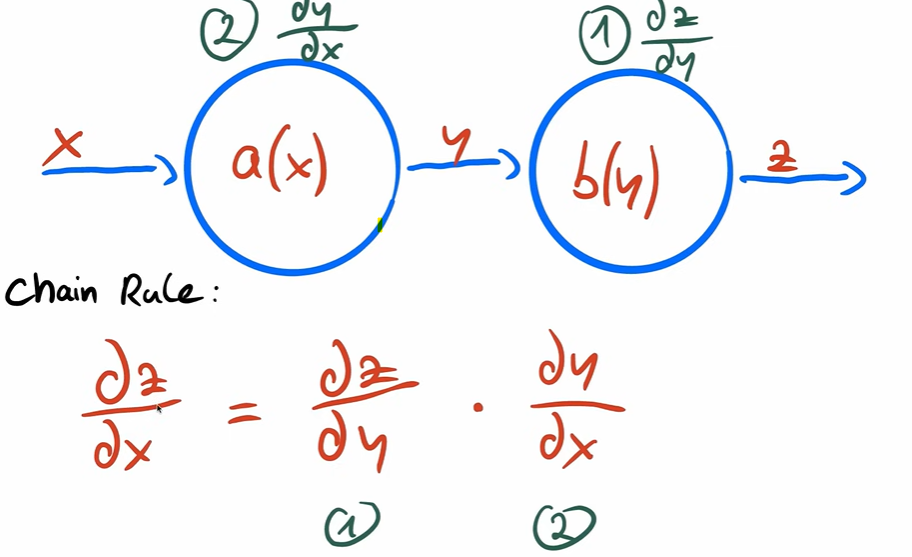 ② dy/∂x ① ∂z/∂y
x a(x) y b(y) z
Chain Rule:
∂z/∂x = ∂z/∂y · ∂y/∂x
① ②